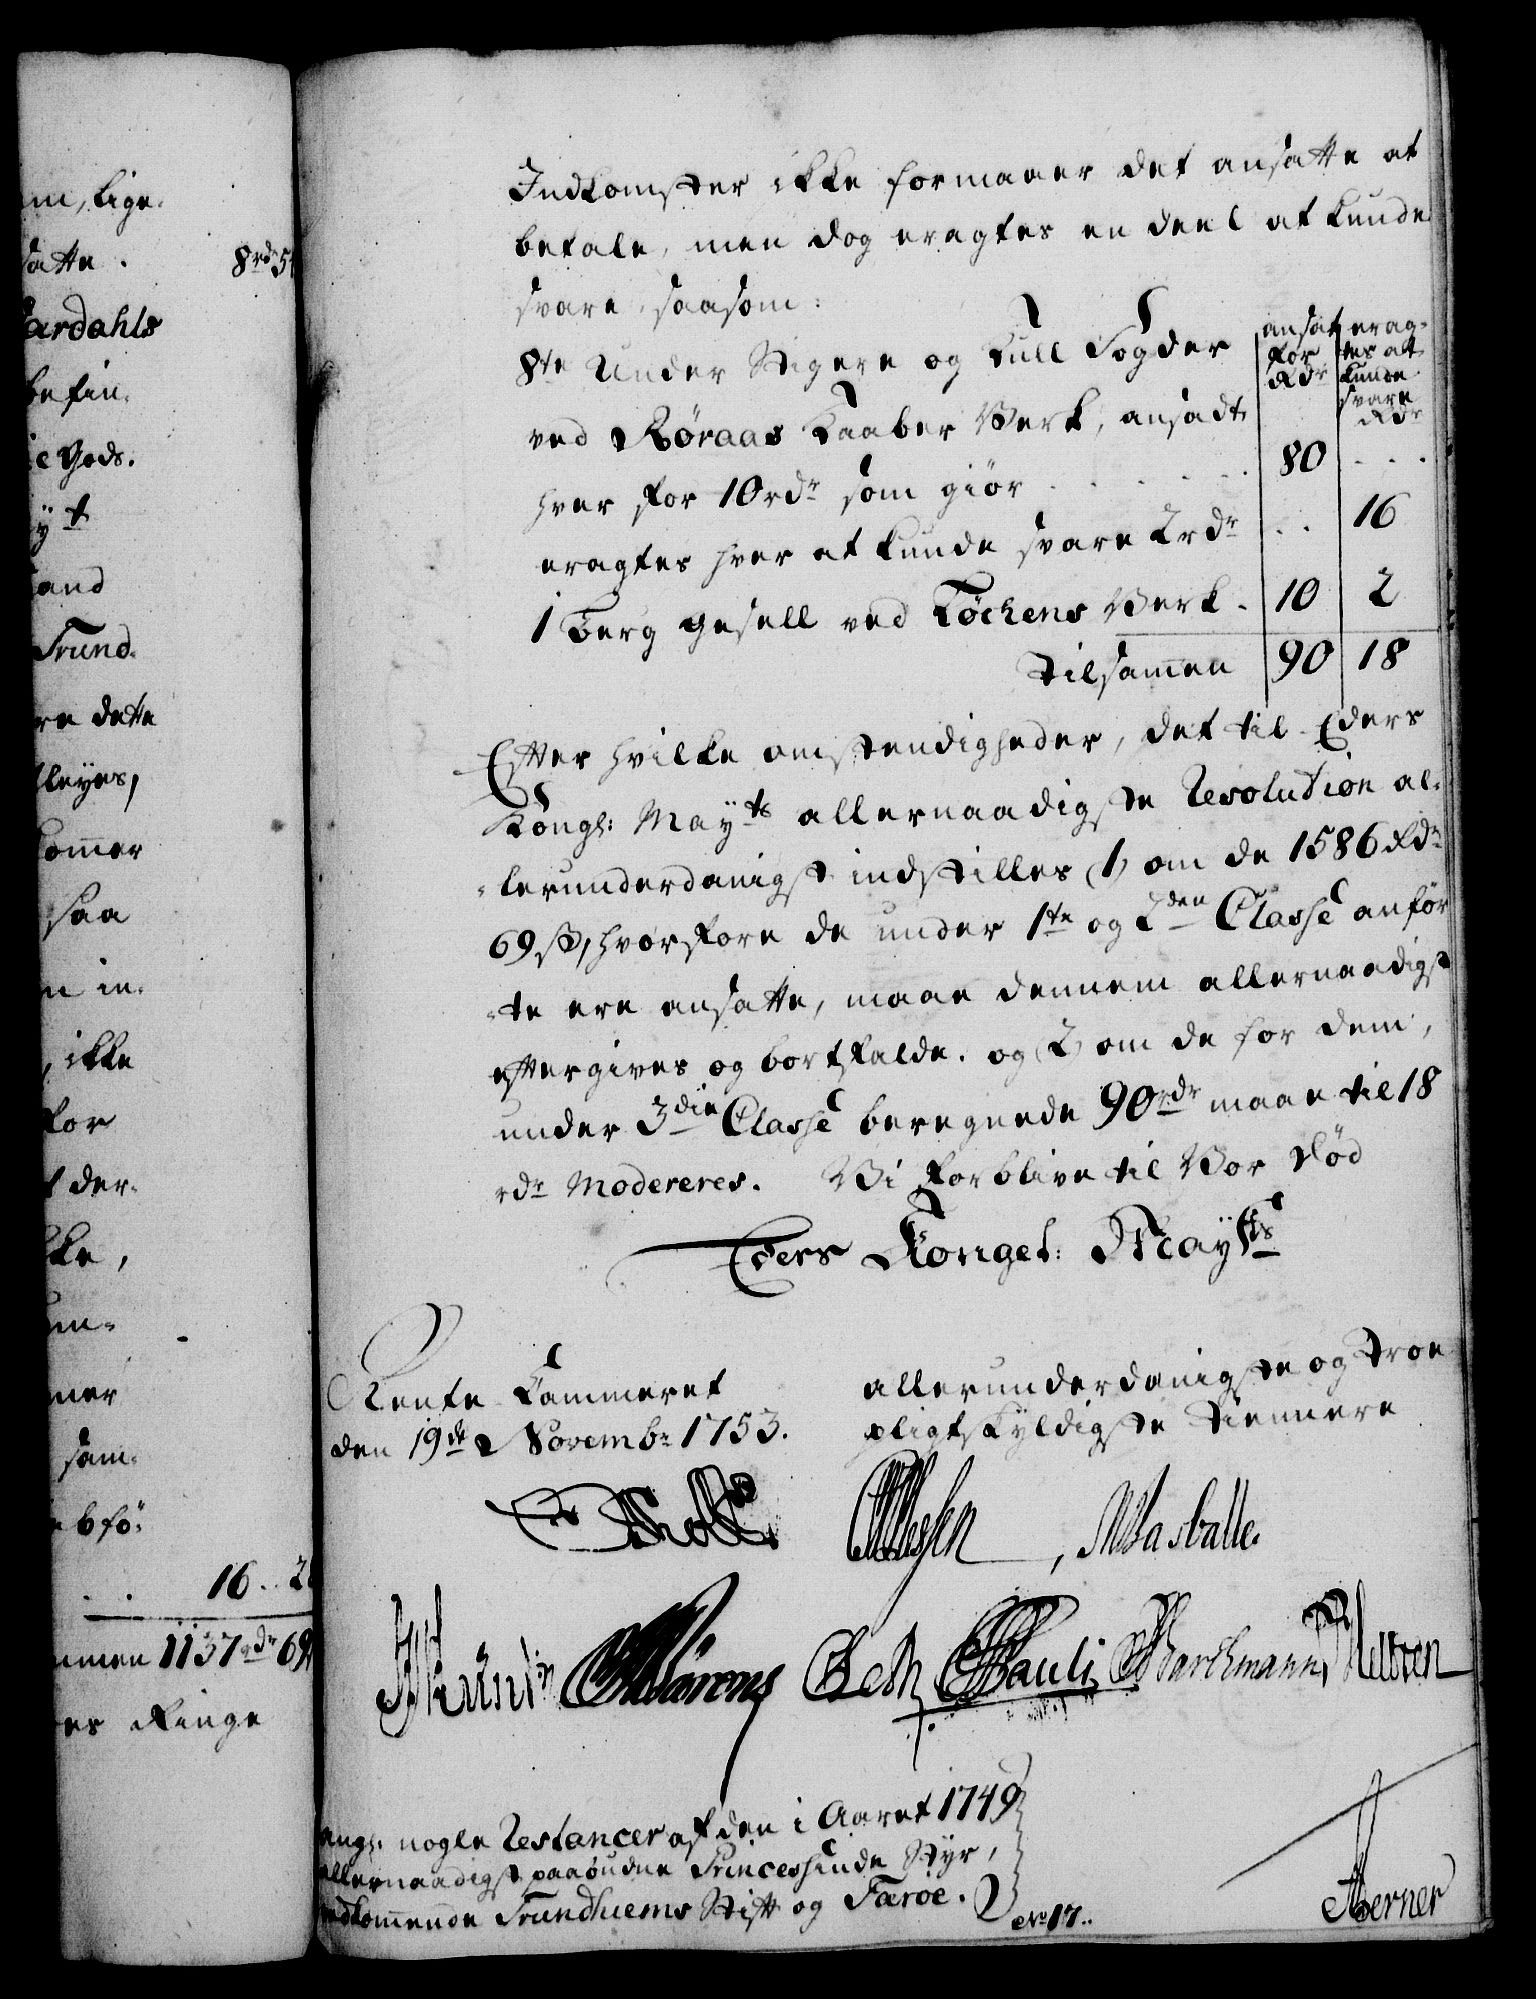 m, lige-
satte . 8rdr 5
ardahls
befin-
e Gods.
yt
and
Trund-
re dette
lleyes,
kommer
saa
n in-
, ikke
for
t der-
kke,
um-
mer
sam-
ebfö-
. . 16 . . 2
mmen 1137rdr 69
es Ringe
Indkomster ikke formaaer det ansatte at
betale, men dog eragtes en deel at kunde
svare, saasom:
ansat for Rdr
eragtes at kunde svare Rdr
8te Under Stigere og Kull Fogder
ved Røraas Kaaber Verk, ansadt
hver for 10 rdr som giör . . . . . 80 . . .
eragtes hver at kunde svare 2 rdr . . 16
1 Berg gesell ved Løckens Verk . 10 2
tilsamen 90 18
Efter hvilke omstendigheder, det til Eders
Kongl: Mayts allernaadigste Resolution al-
-lerunderdanigst indstilles (1, om de 1586 Rdr
69 ß, hvorfore de under 1te og 2den Classe anför
-te ere ansatte, maae dennem allernaadigst
eftergives og bortfalde. og (2, om de for dem,
under 3die Classe beregnede 90 rdr maae til 18
rdr Modereres. Vi forblive til Vor Död
Eders Kongel: Mayts
Rente Kammeret
den 19de Novembr 1753.
allerunderdanigste og troe
pligtskyldigste tienere
Holst
Beth Pauli Barchmann
ang: nogle Restancer af den i Aaret 1749
allernaadigst paabudne Princessinde Styr,
vedkommende Trundhiems Stift og Færöe.
No 17..
Berner